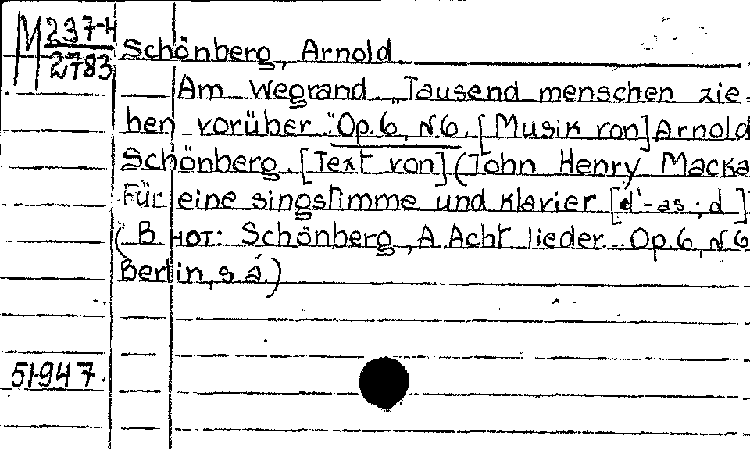 М 237-4
2783
Schönberg, Arnold
Am Wegrand „Tausend menschen zie-
hen vorüber." Op.6, N.6. [Musik von] Arnold
Schönberg. [Text von] (John Henry Macka
Für eine singstimme und Klavier [d'-as; d]
(В нот: Schönberg, A. Acht lieder. Op.6, N.6
Berlin, s.a.)
51947.